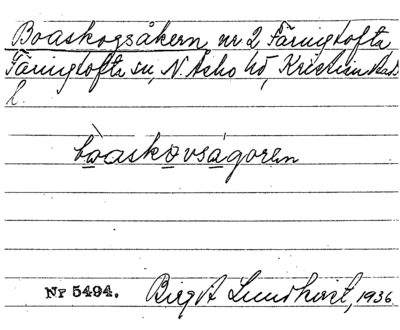 Boaskogsåkern, nr 2 Färingtofta,
Färingtofta sn, N. Åsbo hd, Kristianstads
l.
boaskovsågoren
Nr 5494. Birgit Lundkvist, 1936